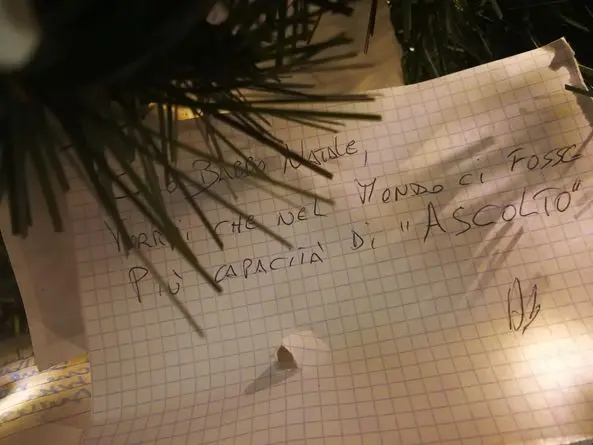 BABBO NATALE,
VORREI CHE NEL MONDO CI FOSSE
PIÙ CAPACITÀ DI "ASCOLTO"